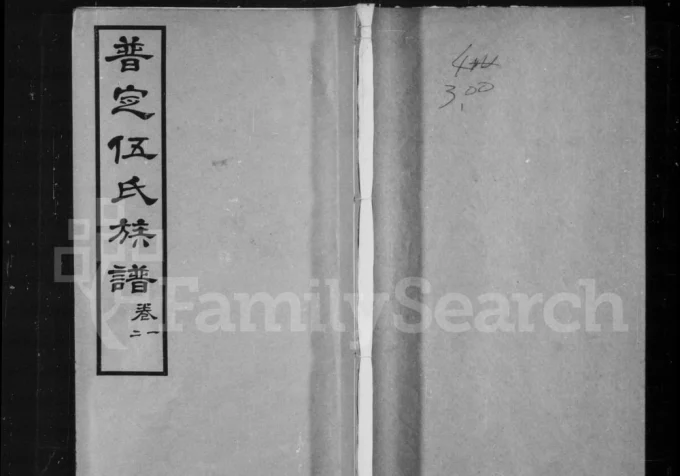 普定伍氏族譜
卷一二
4卌
3.00
FamilySearch